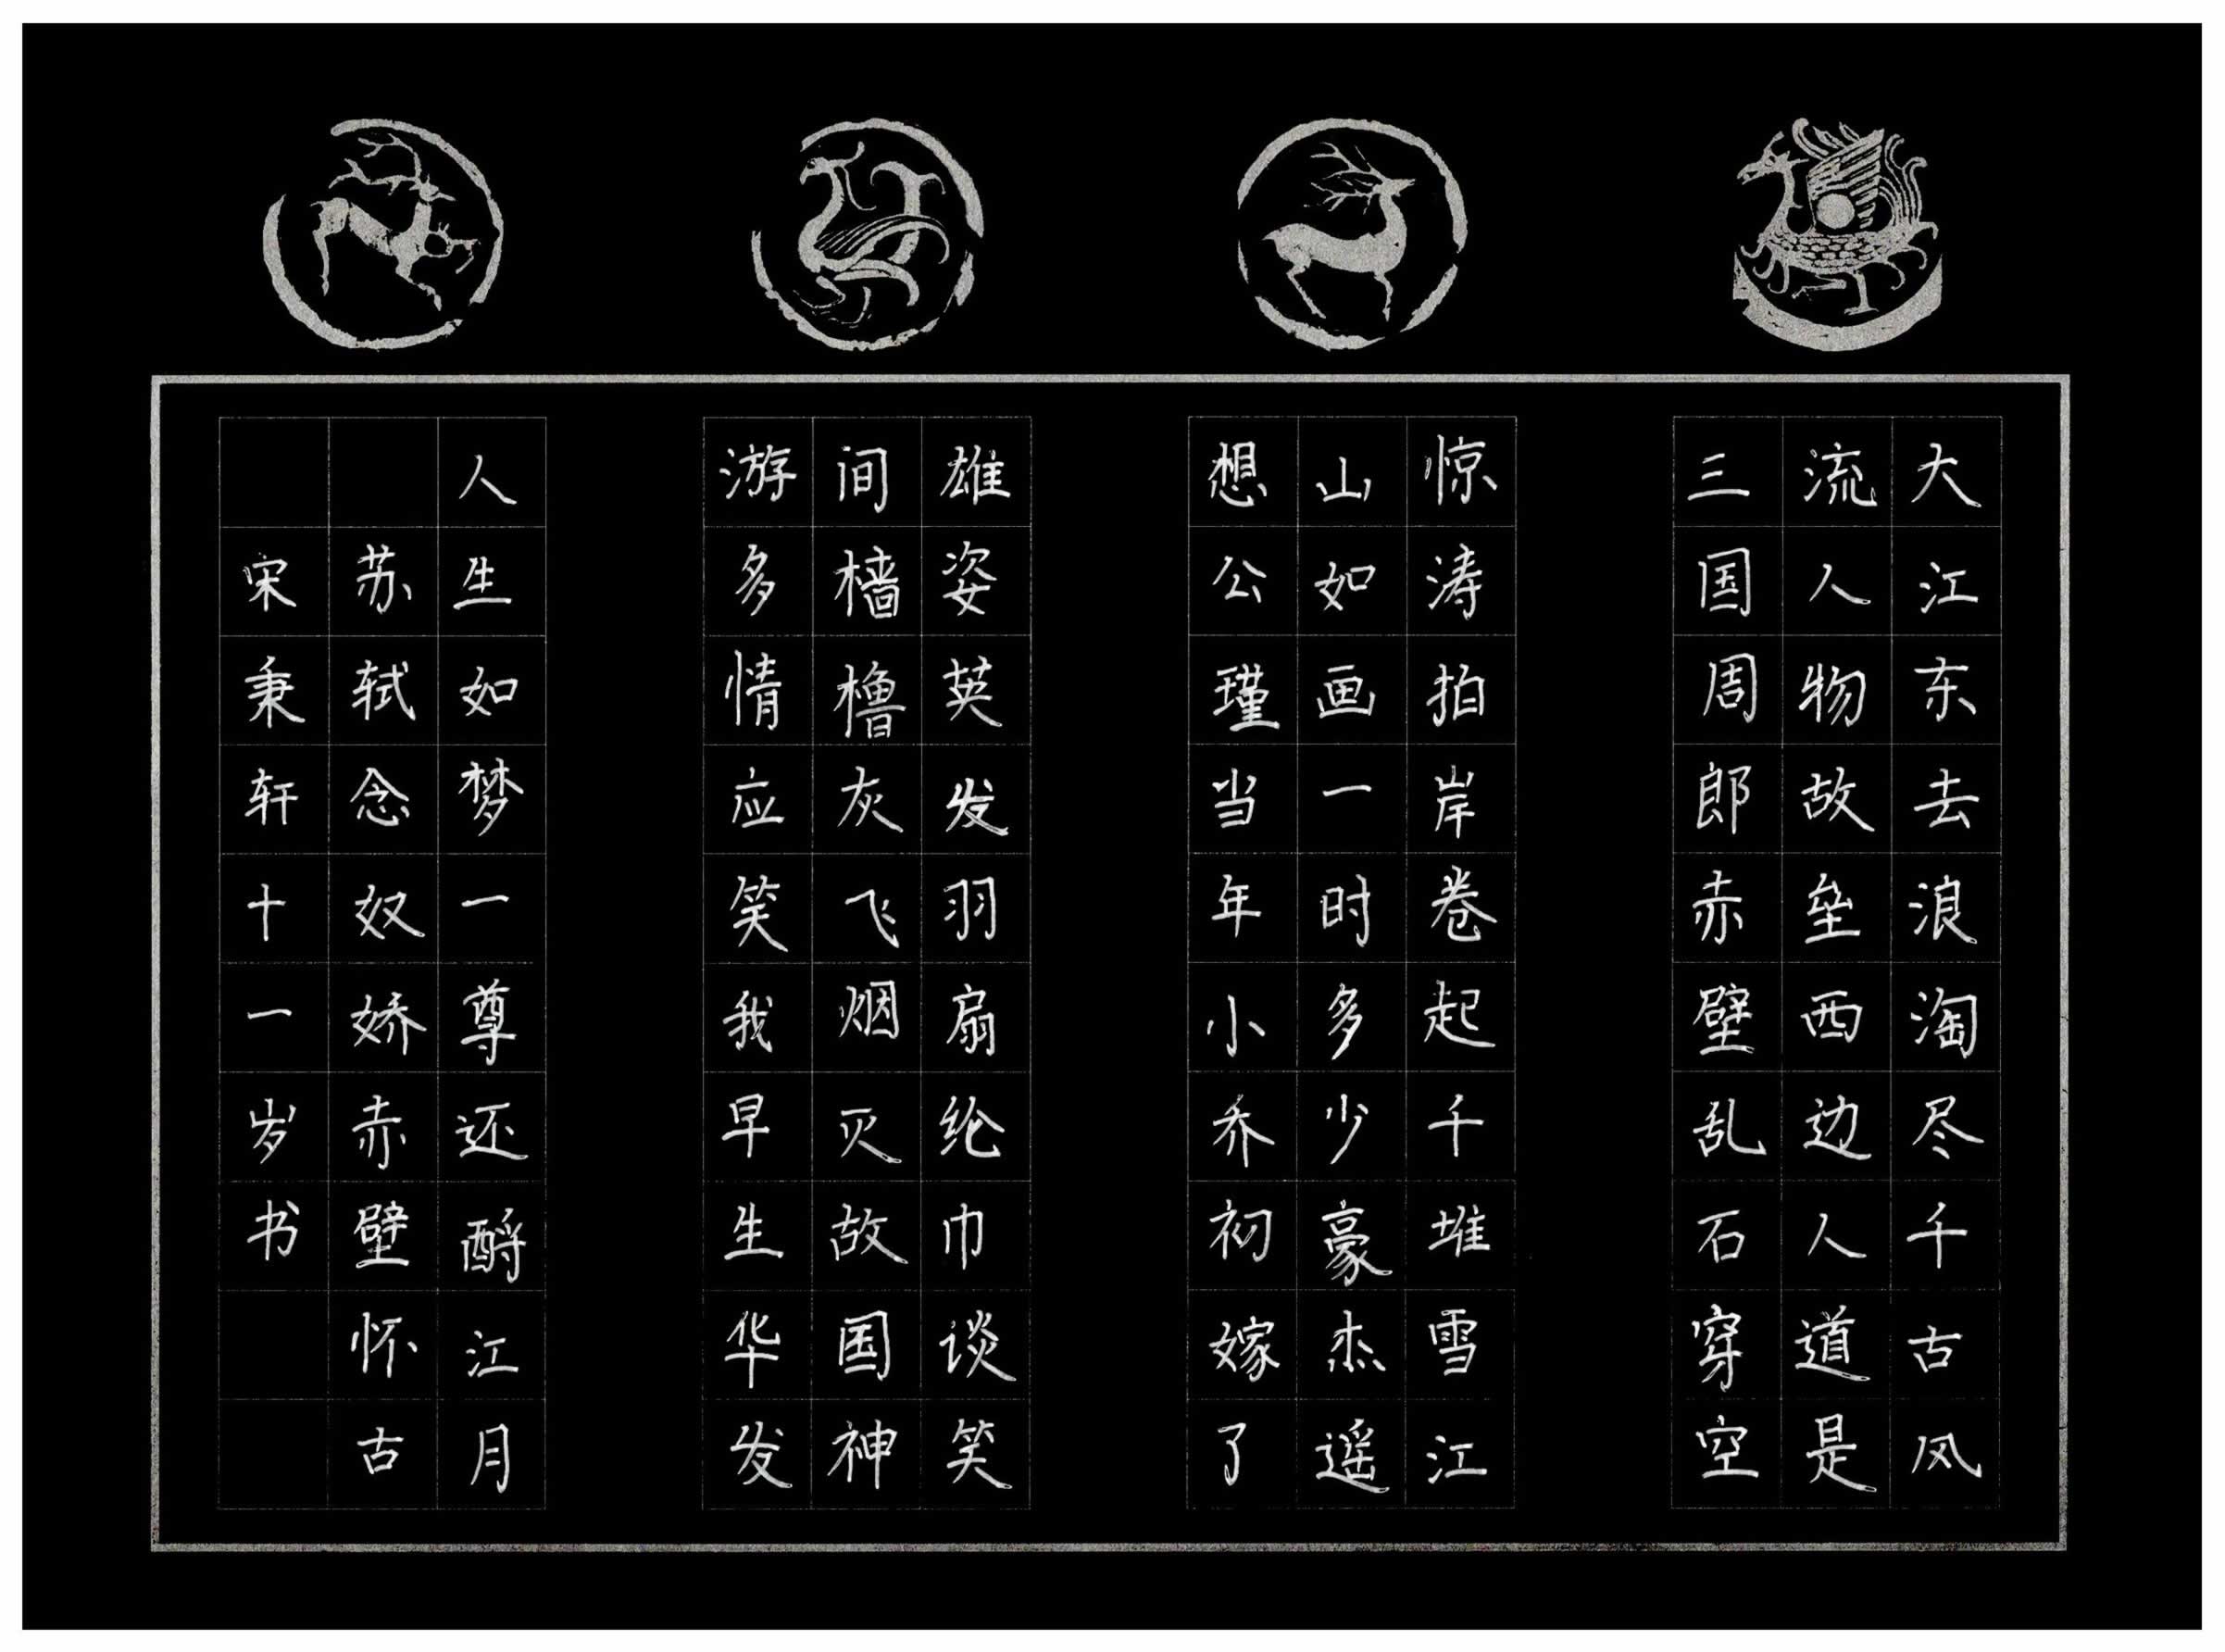 大江东去浪淘尽千古风
流人物故垒西边人道是
三国周郎赤壁乱石穿空
惊涛拍岸卷起千堆雪江
山如画一时多少豪杰遥
想公瑾当年小乔初嫁了
雄姿英发羽扇纶巾谈笑
间樯橹灰飞烟灭故国神
游多情应笑我早生华发
人生如梦一尊还酹江月
苏轼念奴娇赤壁怀古
宋秉轩十一岁书